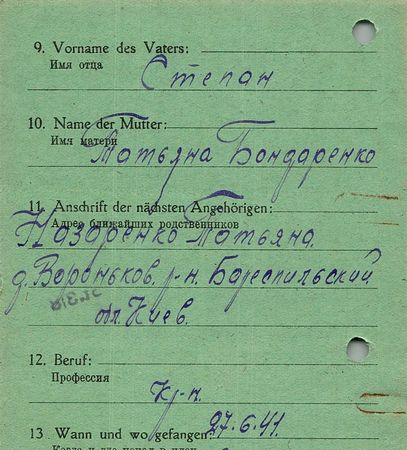 9. Vorname des Vaters:
Имя отца
Степан
10. Name der Mutter:
Имя матери
Татьяна Бондаренко
11. Anschrift der nächsten Angehörigen:
Адрес ближайших родственников
Назаренко Татьяна.
д. Вороньков, р-н. Бареспильский
обл. Киев.
12. Beruf:
Профессия
Кр-н.
13 Wann und wo gefangen: 27.6.41.